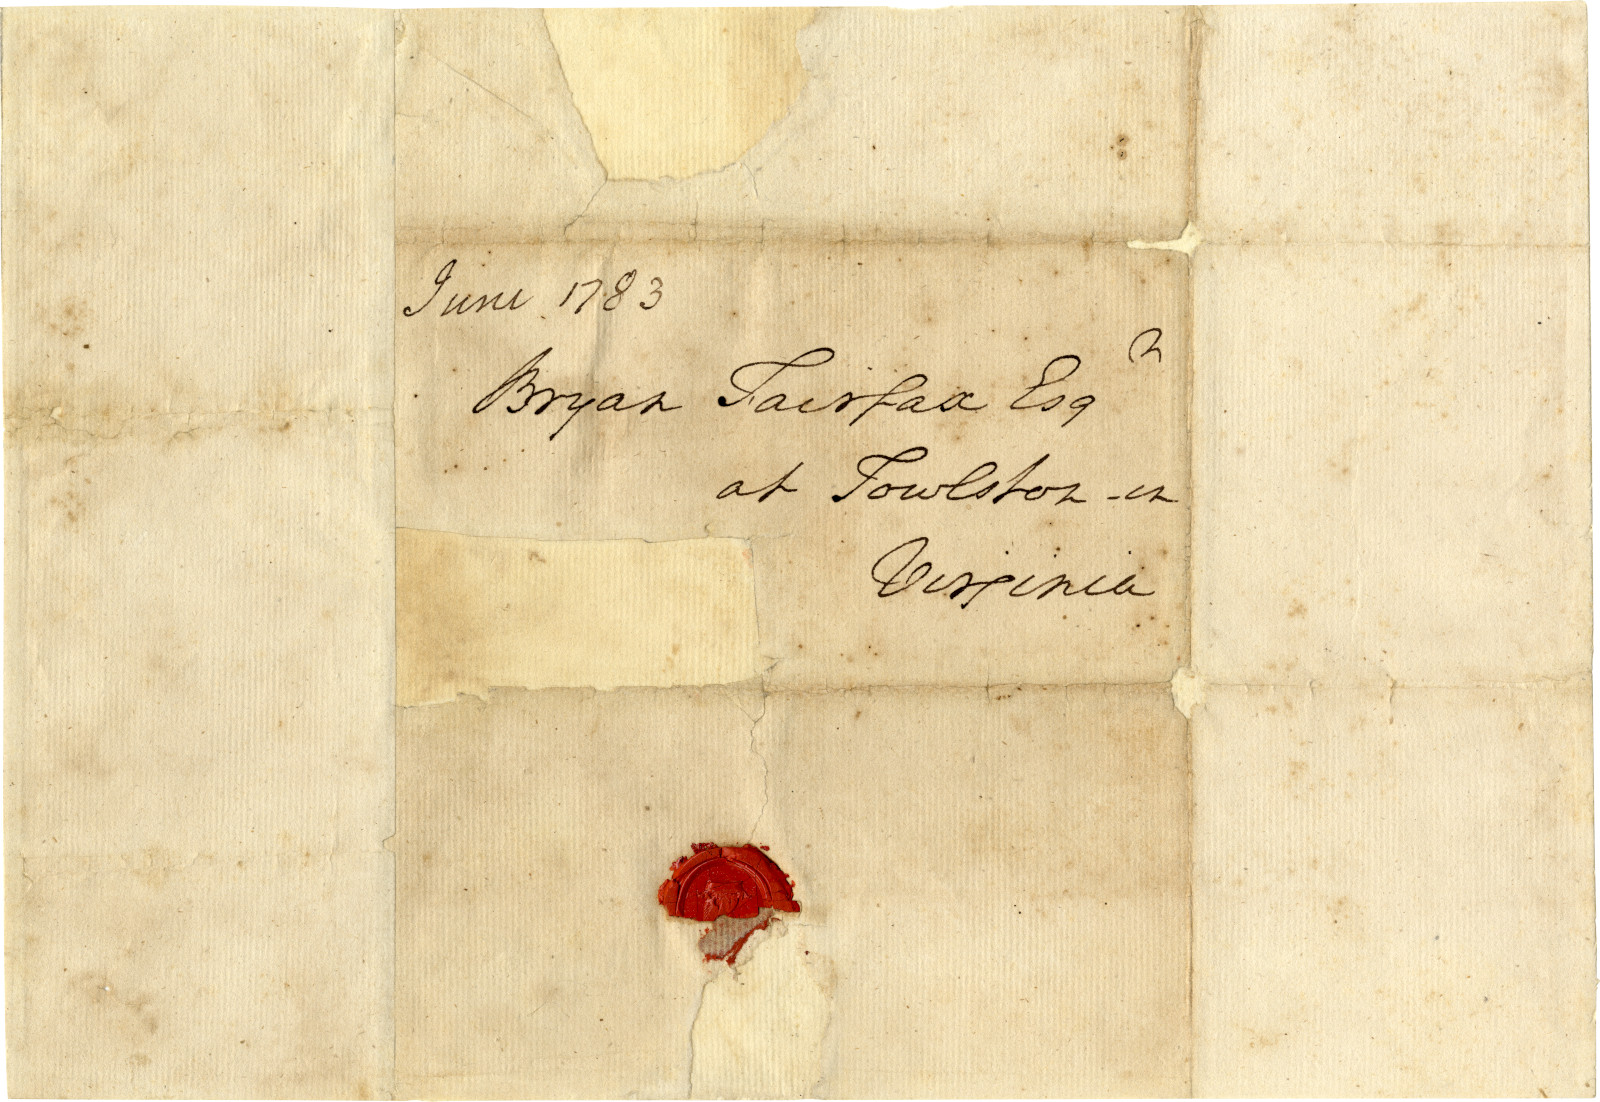 June 1783
Bryan Fairfax Esqr
at Towlston in
Virginia